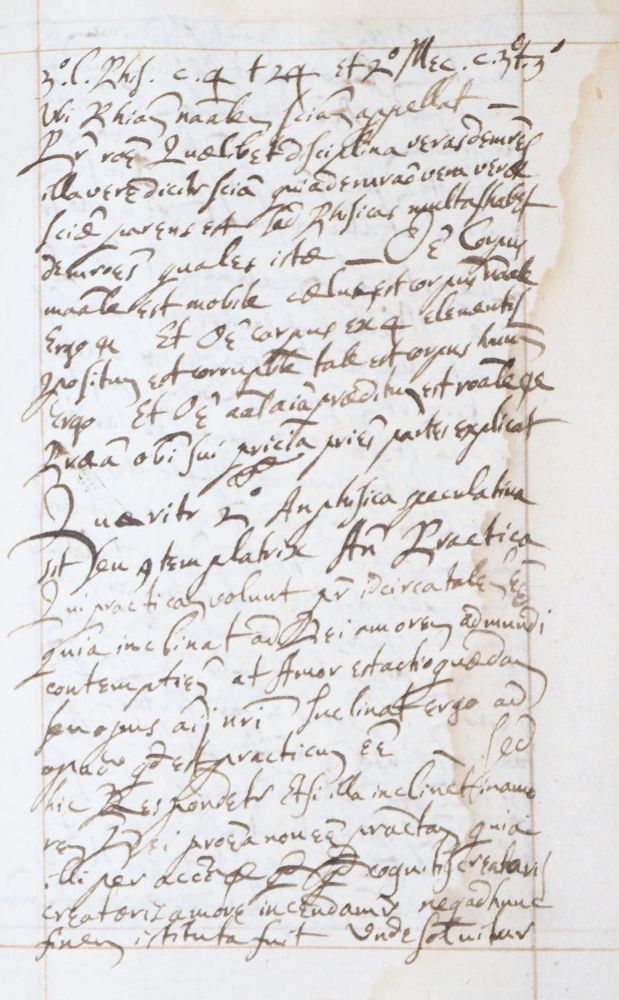 3º. l. Phis. c. 4 t 24 et 2º Mec. c. 3º t. 3º
Vbi Phiam naalem sciam appellat —
Pr roē Quaelibet disciplina veras demrēs
illa vere dicitr scia quia demraō vera verae
sciae parens est sed Phisica multas habet
demroēs quales istae — Oē Corpus
naale est mobile caelum est corpus naale
Ergo et Oē corpus ex 4 elementis
9positum est corruptile tale est corpus hum
Ergo Et Oē aal aia praeditum est
Praea obi sui pricia pries partes explicat
Quaeritr 2º An phisica speculatiua
sit seu 9templatrix An Practica
Qui practicam volunt pr id circa talem eē
quia inclinat ad Dei amorem ad mundi
contemptiem at Amor est actio quaedam
seu opus aij nri Inclinat ergo ad
opaō qd est practicum eē — Sed
hic Respondetr Etsi illa inclinet in amo
rem Dei proea non eē practam quia
illi per accns cognitis creaturis
creatoris amore incendamr neq ad hunc
finem istituta fuit Vnde soluitur